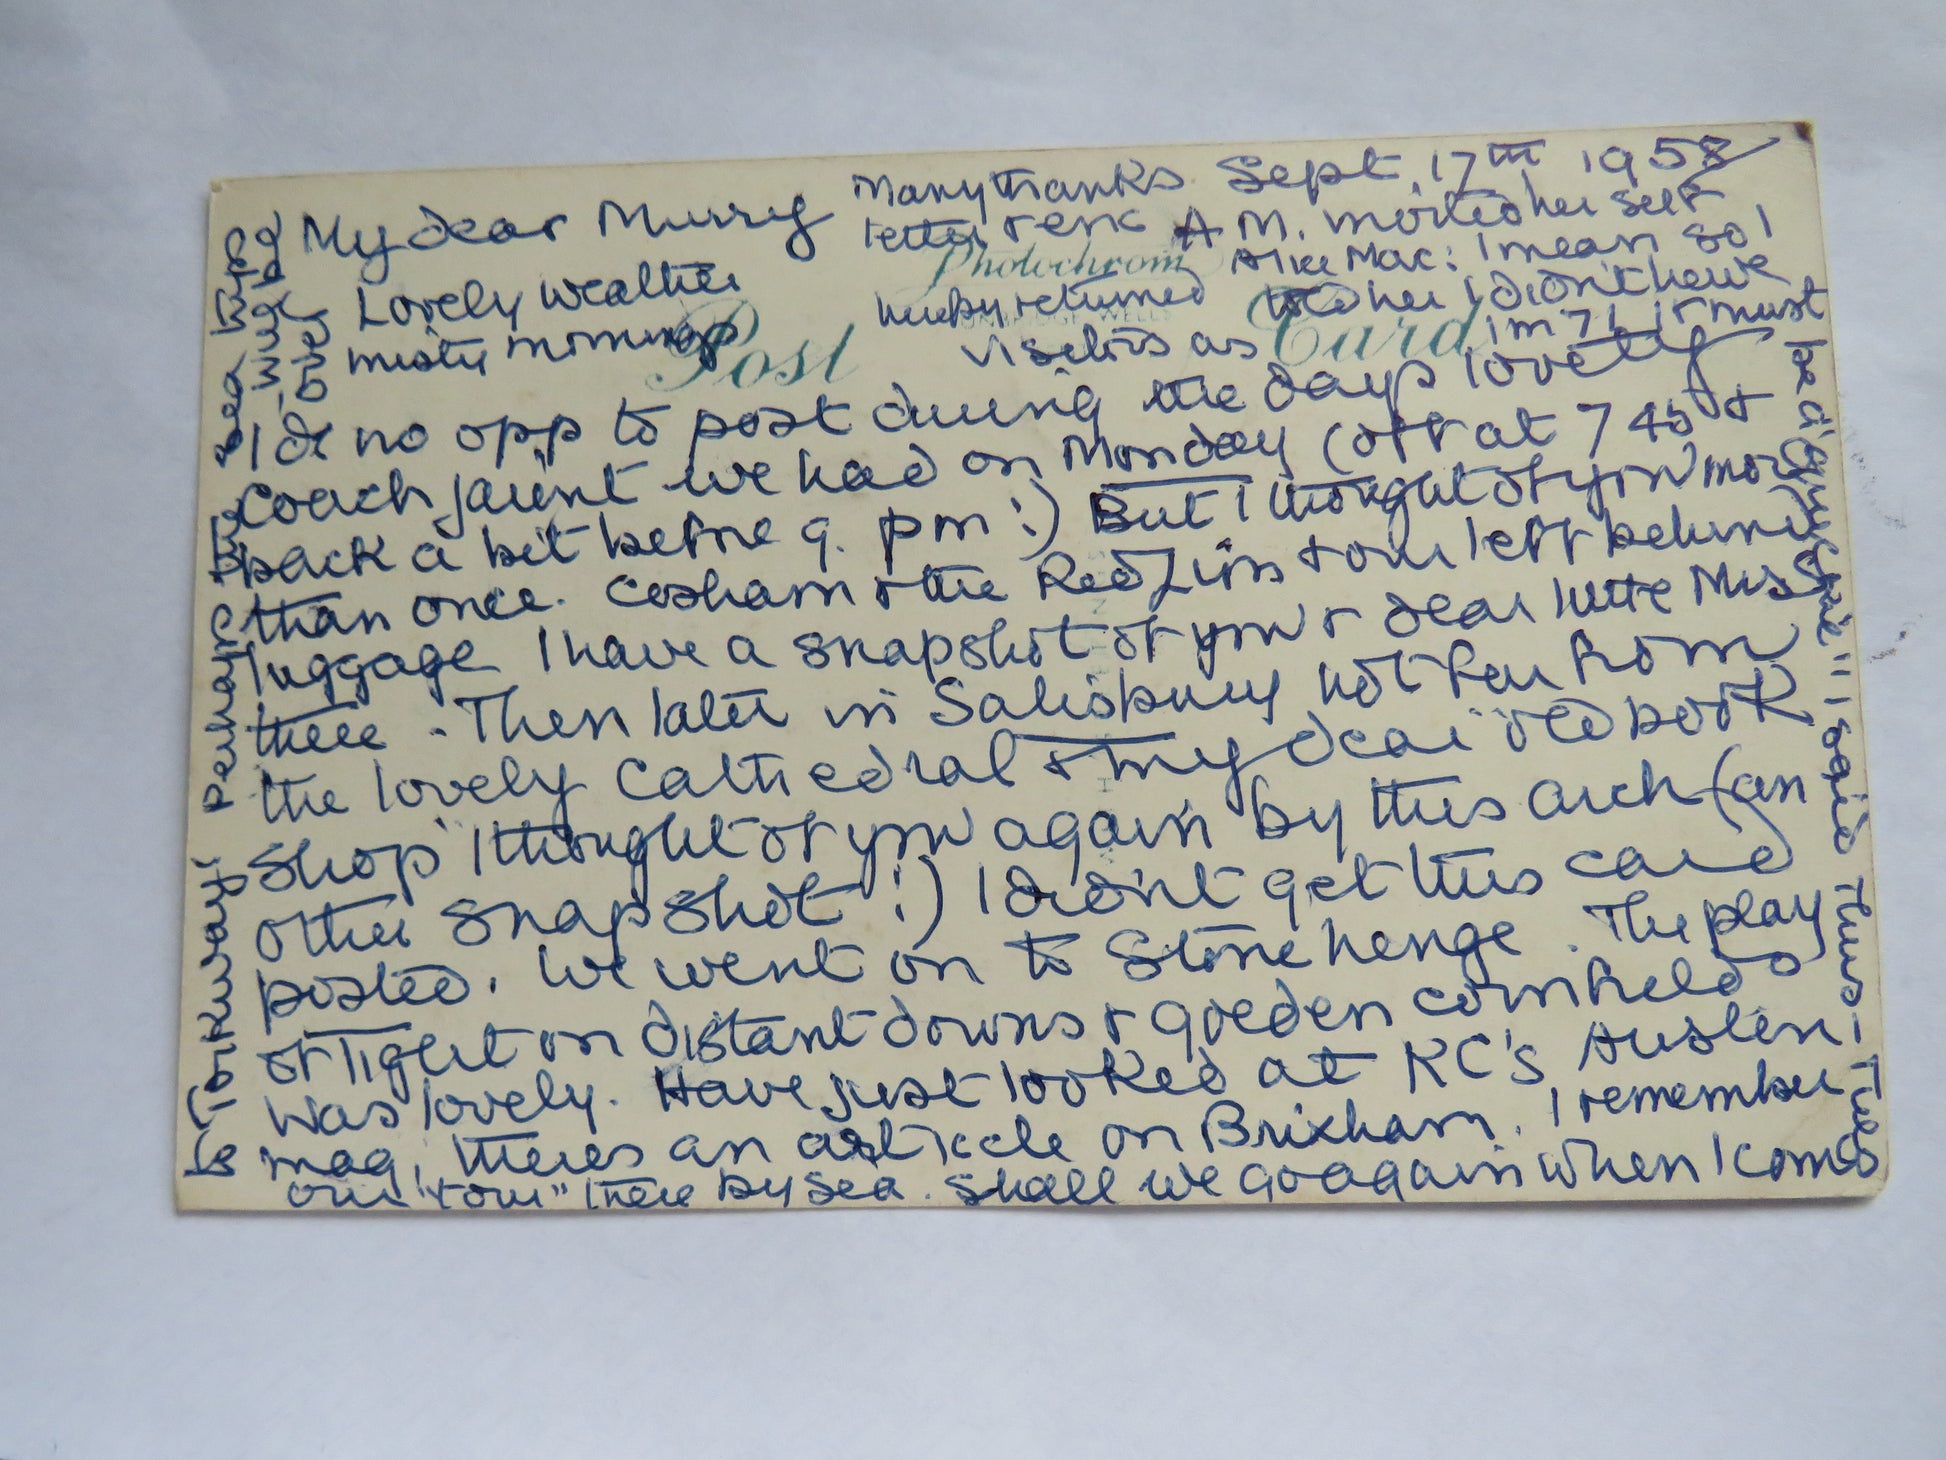 Sept. 17th 1958
My dear Murry
Many thanks
letter & enc A M. invited her self
Photochrom
Alice Mac: I mean so I
Lovely weather
herby returned told her I didn't have
misty mornings
visitors as I'm 71 it must
be a disguise!!" said
Post Card
TUNBRIDGE WELLS
no opp to post during the days lovely
coach jaunt we had on Monday (off at 7 45 &
back a bit before 9. pm!) But I thought of you more
than once. Cosham & the Red Lion & our left behind
luggage I have a snapshot of you & dear little Miss
there. Then later in Salisbury not far from
the lovely Cathedral & my dear old book
shop I thought of you again by this arch (an
other snapshot!) I didn't get this card
posted. We went on to Stonehenge. The play
of light on distant downs & golden cornfields
was lovely. Have just looked at KC's Austin
mag, theres an article on Brixham. I remember
our "tour" there by sea. Shall we go again when I come
to Torkways? Perhaps the
sea trips
will be
over